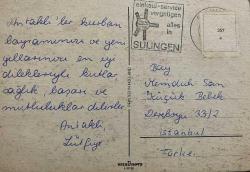 Antakti'ler kurban
bayramınızı ve yeni
yıllarınızı en iyi
dileklerimle kutlar,
sağlık, başarı ve
mutluluklar dilerler.
Antakti,
Lütfiye
einkauf-service
vergnügen
alles
in
SOLINGEN
Bay
Memduh San
Küçük Bebek
Dereboyu 33/2
İstanbul
Türkei